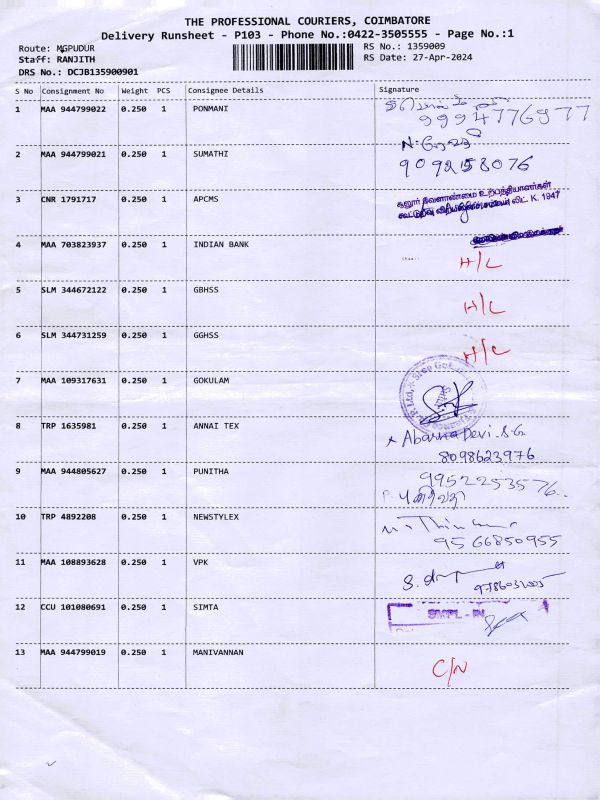 THE PROFESSIONAL COURIERS, COIMBATORE
Delivery Runsheet - P103 - Phone No.:0422-3505555 - Page No.:1
Route: MGPUDUR
RS No.: 1359009
Staff: RANJITH
RS Date: 27-Apr-2024
DRS No.: DCJB135900901
S No Consignment No Weight PCS Consignee Details Signature
1 MAA 944799022 0.250 1 PONMANI
9994776977
2 MAA 944799021 0.250 1 SUMATHI
9092158076
3 CNR 1791717 0.250 1 APCMS
கூட்டுறவு லிட். K. 1947
4 MAA 703823937 0.250 1 INDIAN BANK H/L
5 SLM 344672122 0.250 1 GBHSS H/L
6 SLM 344731259 0.250 1 GGHSS H/L
7 MAA 109317631 0.250 1 GOKULAM
8 TRP 1635981 0.250 1 ANNAI TEX Abarna Devi. S.G
8098623976
9 MAA 944805627 0.250 1 PUNITHA 9952253576
P. புனிதா
10 TRP 4892208 0.250 1 NEWSTYLEX
9566850955
11 MAA 108893628 0.250 1 VPK
12 CCU 101080691 0.250 1 SIMTA SMPL - IN
13 MAA 944799019 0.250 1 MANIVANNAN C/N